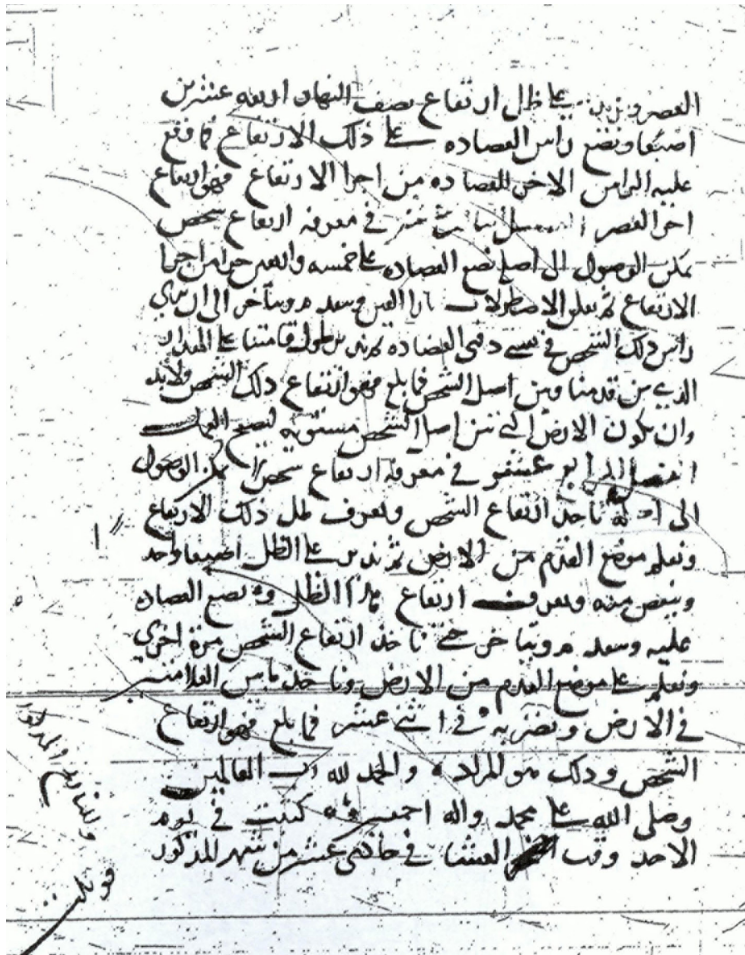 العصر ونزيد على ظل ارتفاع نصف النهار اربعه عشرين
اصبعا ونضع راس العضاده على ذلك الارتفاع فما وقع
عليه الراس الاخر للعضاده من اجزا الارتفاع فهو ارتفاع
اخر العصر الفصل عشر في معرفه ارتفاع شخص
يمكن الوصول الى اصله نضع العضاده على خمسه واربعين جزا من اجزا
الارتفاع ثم نعلق الاصطرلاب ونتاخر الى ان نرى
راس ذلك الشخص في دفتى العضاده ثم نزيد طول قامتنا على المقدار
الذي بين قدمنا وبين اصل الشخص فما بلغ فهو ارتفاع ذلك الشخص ولابد
وان يكون الارض التي بين اصل الشخص مستويه ليصح
الفصل عشر في معرفه ارتفاع شخص الوصول
الى ناخذ ارتفاع الشخص ونعرف ظل ذلك الارتفاع
ونعلم موضع القدم من الارض ثم نزيد على الظل اصبعا واحد
وننقص منه ونعرف ارتفاع الظل ونضع العضاده
عليه ونتاخر حتى ناخذ ارتفاع الشخص مرة اخرى
ونعلم على موضع القدم من الارض وناخذ مابين العلامتين
في الارض ونضربه في اثنى عشر فما بلغ فهو ارتفاع
الشخص وذلك هو المراد والحمد لله رب العالمين
وصلى الله على محمد واله اجمعين كتبت في يوم
الاحد وقت العشا في حادى عشر من شهر المذكور